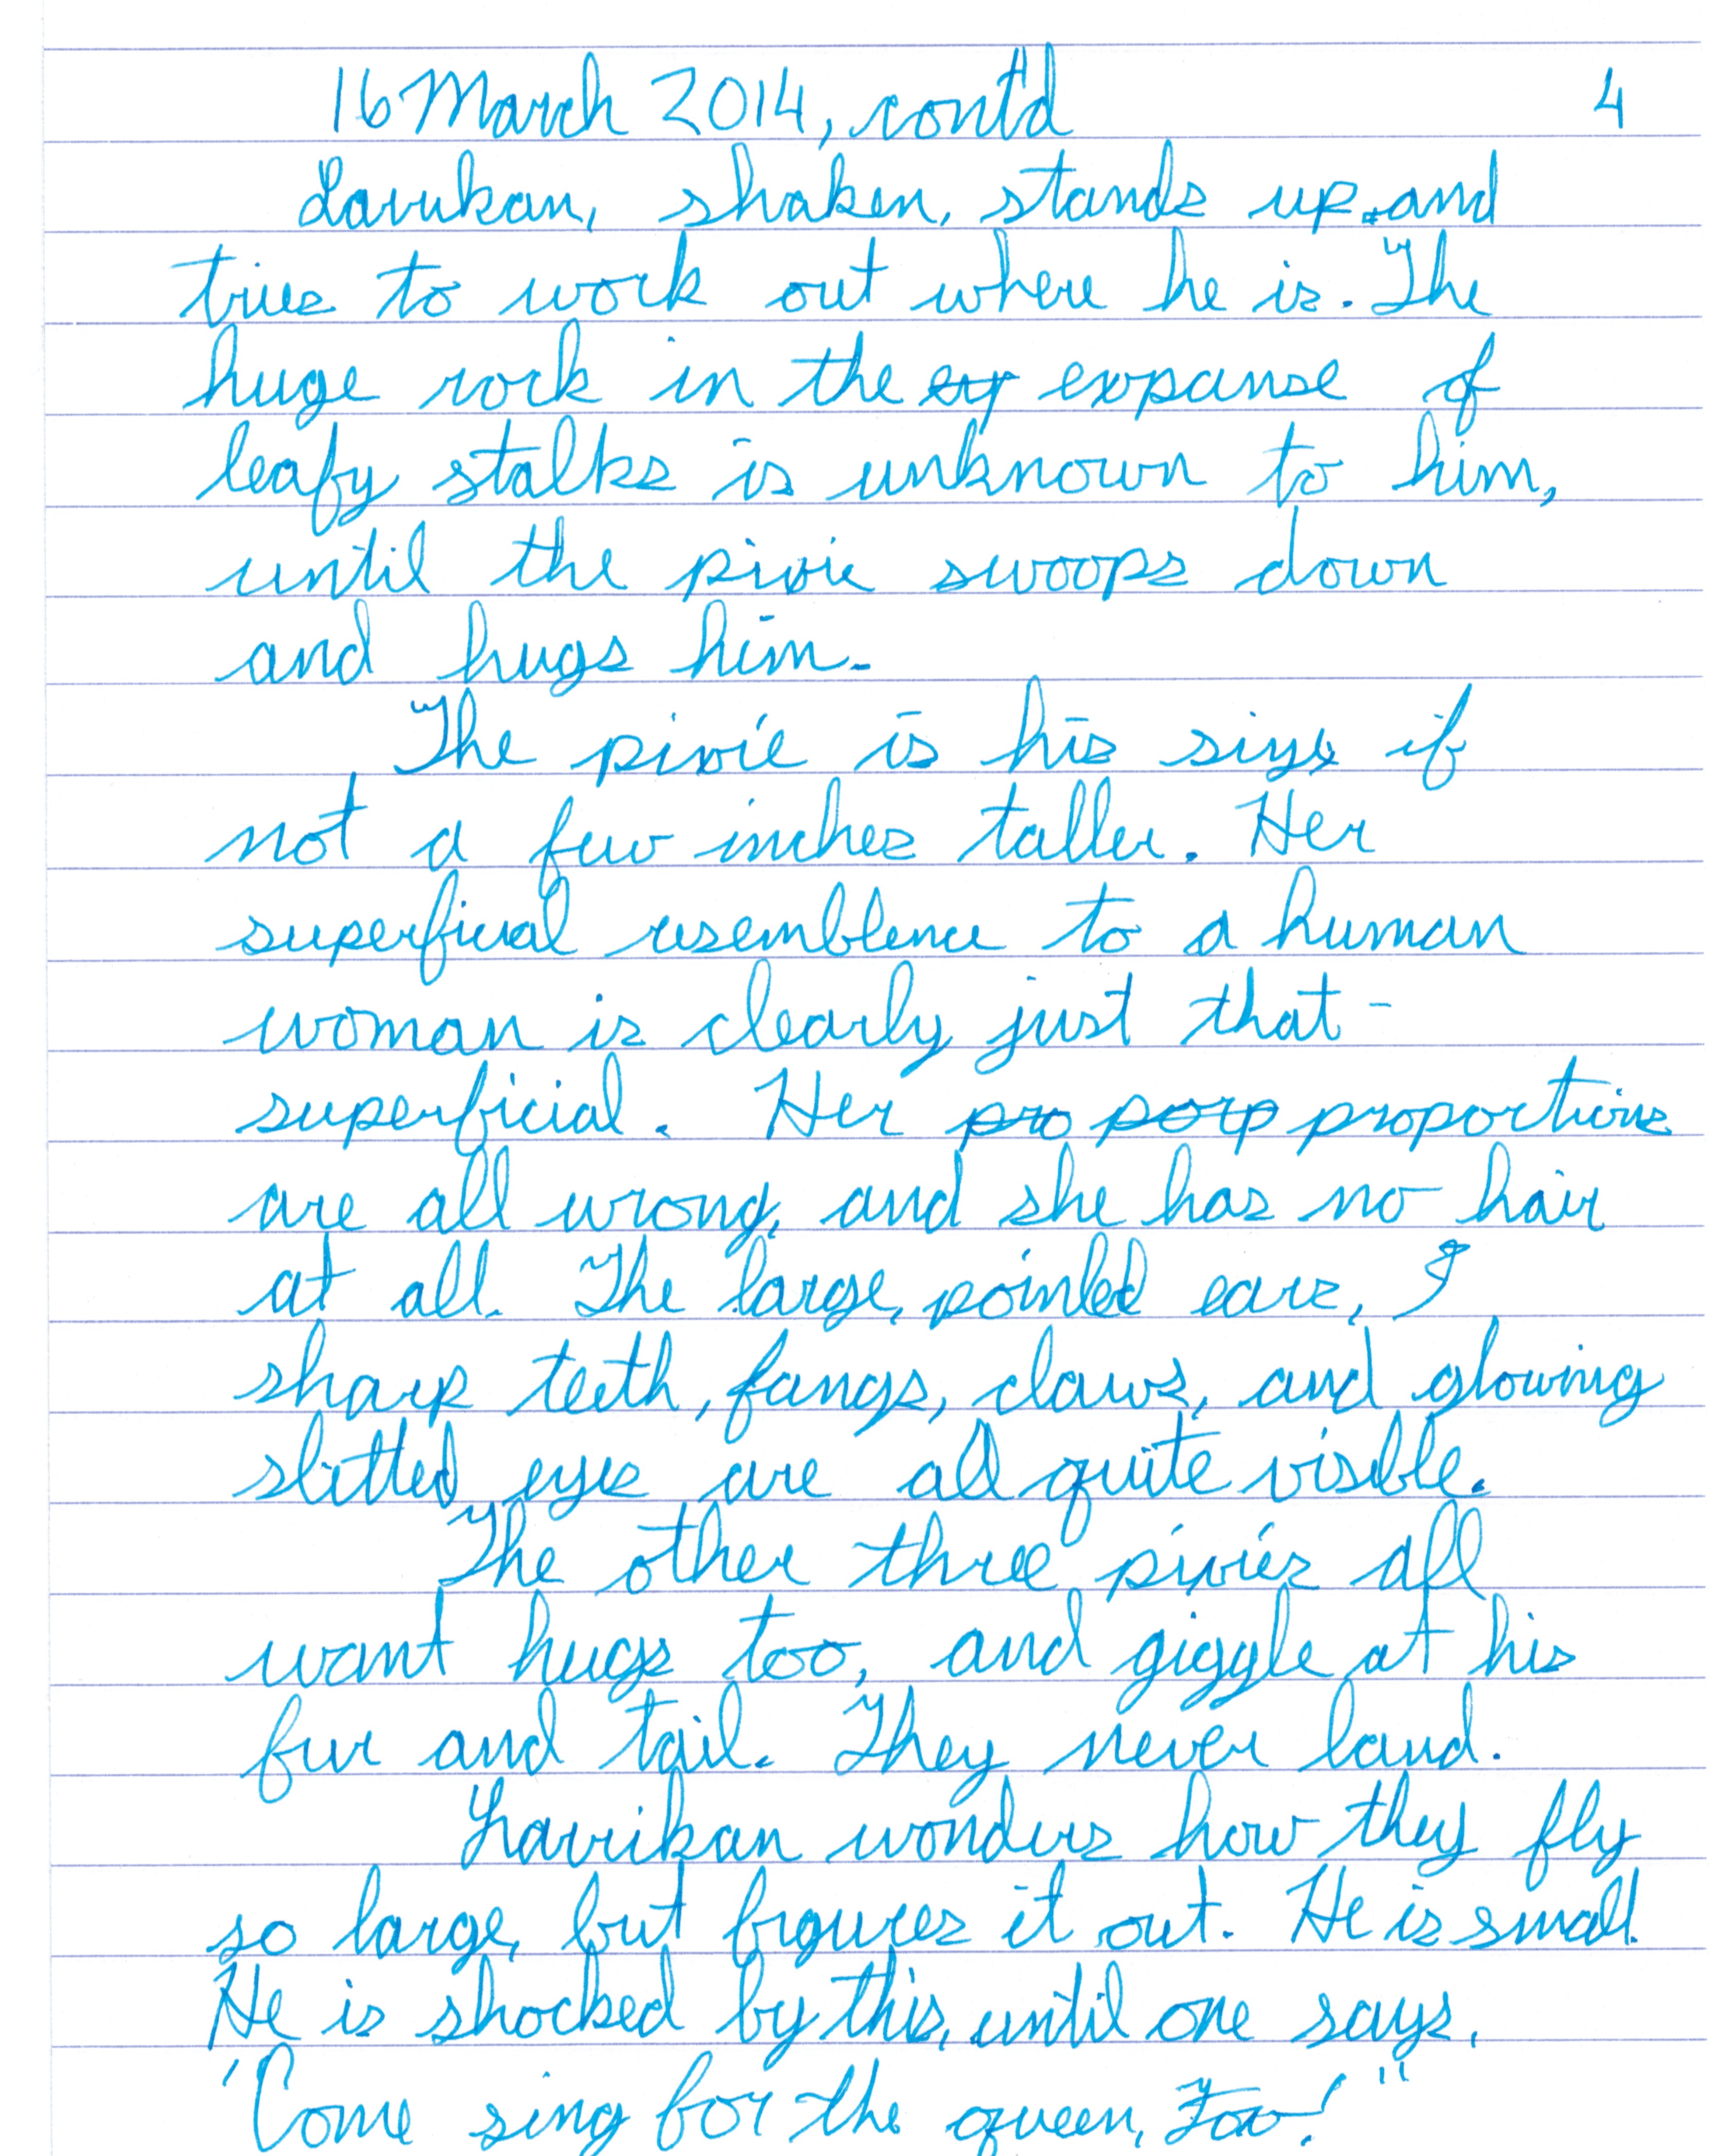 16 March 2014, cont'd 4
Lavrikan, shaken, stands up and
tries to work out where he is. The
huge rock in the ex expanse of
leafy stalks is unknown to him,
until the pixie swoops down
and hugs him.
The pixie is his size if
not a few inches taller. Her
superficial resemblence to a human
woman is clearly just that -
superficial. Her pro porp proportions
are all wrong, and she has no hair
at all. The large, pointed ears,
sharp teeth, fangs, claws, and glowing
slitted eyes are all quite visible.
The other three pixies all
want hugs too, and giggle at his
fur and tail. They never land.
Lavrikan wonders how they fly
so large, but figures it out. He is small.
He is shocked by this, until one says,
"Come sing for the queen, Fox!"